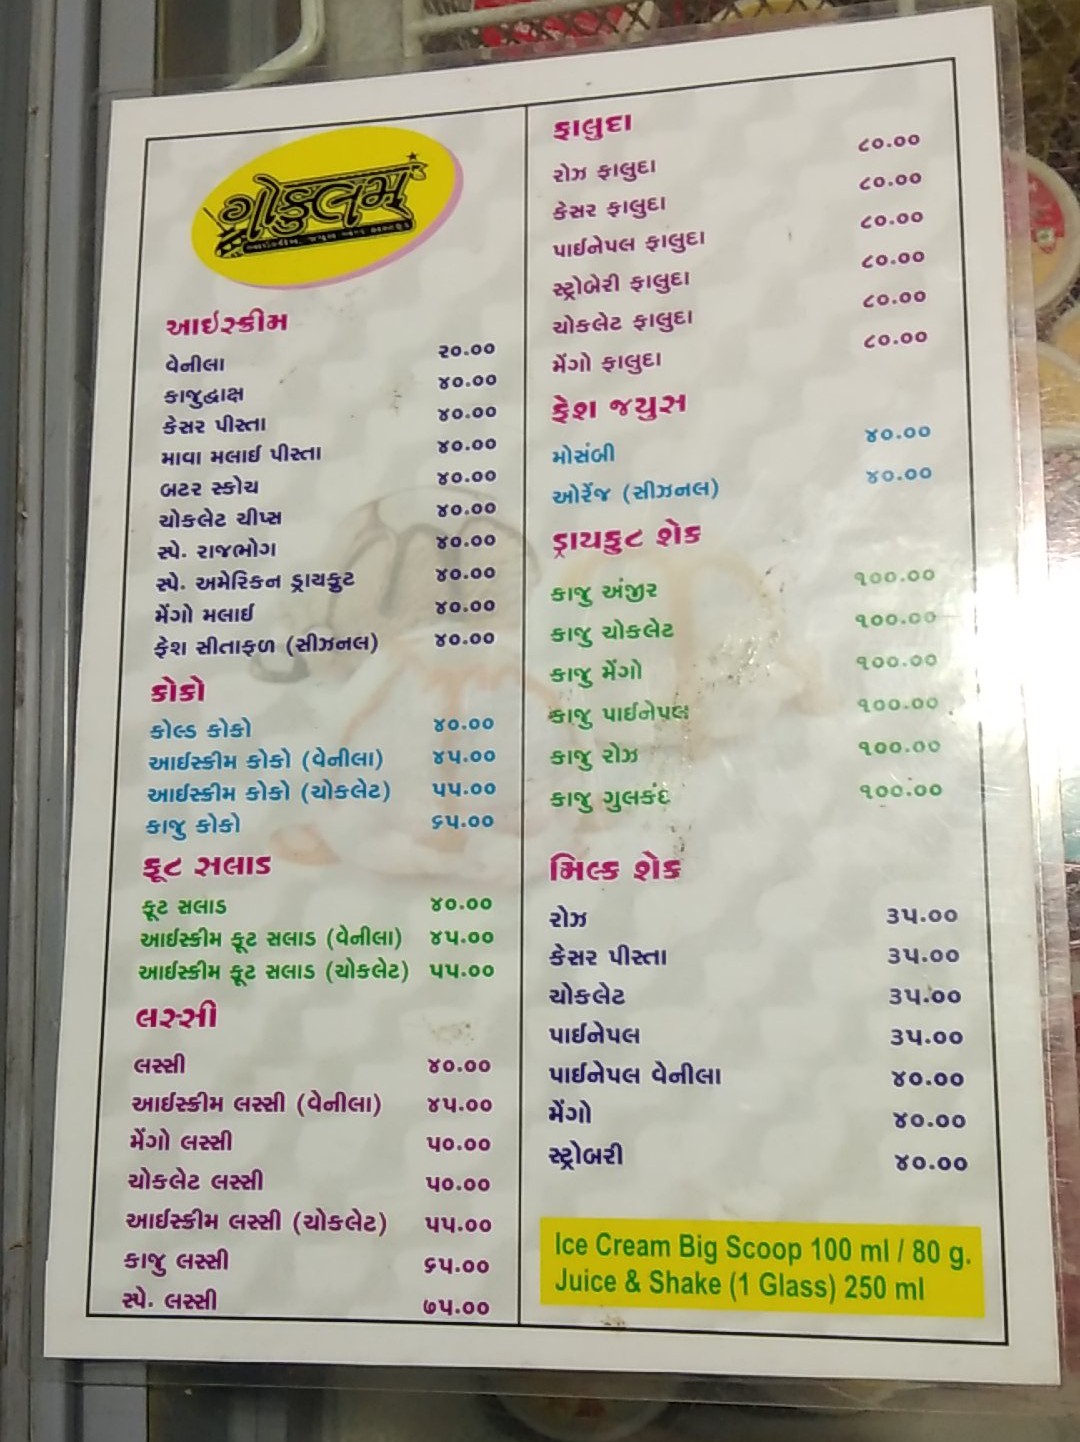 ગોકુલમ
આઇસ્ક્રીમ
વેનીલા ૨૦.૦૦
કાજુદ્રાક્ષ ૪૦.૦૦
કેસર પીસ્તા ૪૦.૦૦
માવા મલાઈ પીસ્તા ૪૦.૦૦
બટર સ્કોચ ૪૦.૦૦
ચોકલેટ ચીપ્સ ૪૦.૦૦
સ્પે. રાજભોગ ૪૦.૦૦
સ્પે. અમેરિકન ડ્રાયફ્રુટ ૪૦.૦૦
મેંગો મલાઈ ૪૦.૦૦
ફ્રેશ સીતાફળ (સીઝનલ) ૪૦.૦૦
કોકો
કોલ્ડ કોકો ૪૦.૦૦
આઈસ્ક્રીમ કોકો (વેનીલા) ૪૫.૦૦
આઈસ્ક્રીમ કોકો (ચોકલેટ) ૫૫.૦૦
કાજુ કોકો ૬૫.૦૦
ફ્રૂટ સલાડ
ફ્રૂટ સલાડ ૪૦.૦૦
આઈસ્ક્રીમ ફ્રૂટ સલાડ (વેનીલા) ૪૫.૦૦
આઈસ્ક્રીમ ફ્રૂટ સલાડ (ચોકલેટ) ૫૫.૦૦
લસ્સી
લસ્સી ૪૦.૦૦
આઈસ્ક્રીમ લસ્સી (વેનીલા) ૪૫.૦૦
મેંગો લસ્સી ૫૦.૦૦
ચોકલેટ લસ્સી ૫૦.૦૦
આઈસ્ક્રીમ લસ્સી (ચોકલેટ) ૫૫.૦૦
કાજુ લસ્સી ૬૫.૦૦
સ્પે. લસ્સી ૭૫.૦૦
ફાલુદા
રોઝ ફાલુદા ૮૦.૦૦
કેસર ફાલુદા ૮૦.૦૦
પાઈનેપલ ફાલુદા ૮૦.૦૦
સ્ટ્રોબેરી ફાલુદા ૮૦.૦૦
ચોકલેટ ફાલુદા ૮૦.૦૦
મેંગો ફાલુદા ૮૦.૦૦
ફ્રેશ જયુસ
મોસંબી ૪૦.૦૦
ઓરેંજ (સીઝનલ) ૪૦.૦૦
ડ્રાયફ્રુટ શેક
કાજુ અંજીર ૧૦૦.૦૦
કાજુ ચોકલેટ ૧૦૦.૦૦
કાજુ મેંગો ૧૦૦.૦૦
કાજુ પાઈનેપલ ૧૦૦.૦૦
કાજુ રોઝ ૧૦૦.૦૦
કાજુ ગુલકંદ ૧૦૦.૦૦
મિલ્ક શેક
રોઝ ૩૫.૦૦
કેસર પીસ્તા ૩૫.૦૦
ચોકલેટ ૩૫.૦૦
પાઈનેપલ ૩૫.૦૦
પાઈનેપલ વેનીલા ૪૦.૦૦
મેંગો ૪૦.૦૦
સ્ટ્રોબરી ૪૦.૦૦
Ice Cream Big Scoop 100 ml / 80 g.
Juice & Shake (1 Glass) 250 ml